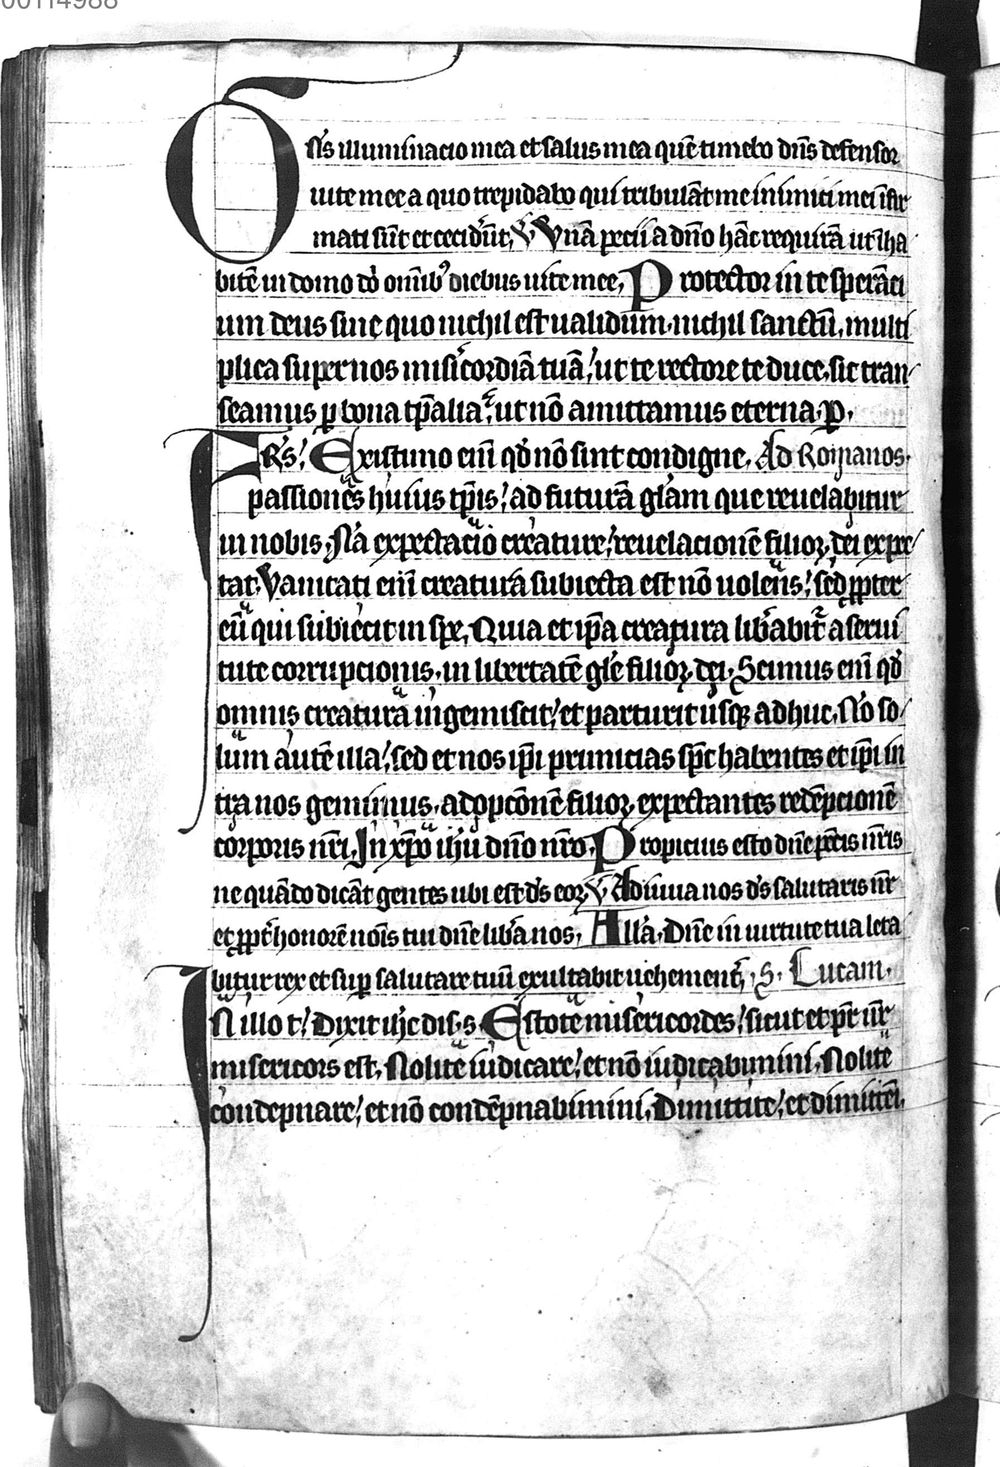 00114988
O
n̄s illuminacio mea et salus mea quē timebo dn̄s defensor
uite mee a quo trepidabo qui tribulāt me inimici mei īfir
mati sūt et cecider̄ūt. V̄ Vnā pecii a dn̄o hāc requirā ut īha
bitē in domo do᷒ om̄ib᷒ diebus uite mee. Protector in te sperāci
um deus sine quo nichil est ualidum, nichil sanctū, multi
plica super nos mis̄icordiā tuā, ut te rectore te duce, sic tran
seamus ꝑ bona tp̄alia, ut nō amittamus eterna. ꝑ.
FRs̄. Existimo eni᷒ qd̄ nō sint condigne. Ad Romanos.
passiones huius tp̄is, ad futurā gl̄am que reuelabitur
in nobis. Nā expectacio creature, reuelacionē filioꝝ dei expe
tat. Vanitati eni᷒ creatura subiecta est nō uolens, sed ꝓpter
eū qui subiecit in spe. Quia et ip̄a creatura lib̄abit᷑ a serui
tute corrupcionis, in libertatē gl̄e filioꝝ dei. Scimus eni᷒ qd̄
omnis creatura ingemiscit, et parturit usqꝫ adhuc. Nō so
lum autē illa, sed et nos ip̄i primicias sp̄c habentes et ip̄i in
tra nos gemimus, adopcōnē filioꝝ expectantes redēpcionē
corporis nr̄i. In xp̄o ih̄u dn̄o nr̄o. Propicius esto dn̄e pctīs nr̄is
ne quādo dicāt gentes ubi est ds̄ eoꝝ. V̄ Adiuua nos ds̄ salutaris nr̄
et ꝓpt̄ honorē nōis tui dn̄e lib̄a nos. All̄a. Dn̄e in uirtute tua leta
bitur rex et suꝑ salutare tuū exultabit uehement̄. S. Lucam.
IN illo t̄. Dixit ih̄c dis. s. Estote misericordes, sicut et pr̄ ur̄
misericors est. Nolite iudicare, et nō iudicabimini. Nolite
condepnare, et nō condēpnabimini. Dimittite, et dimittēi.